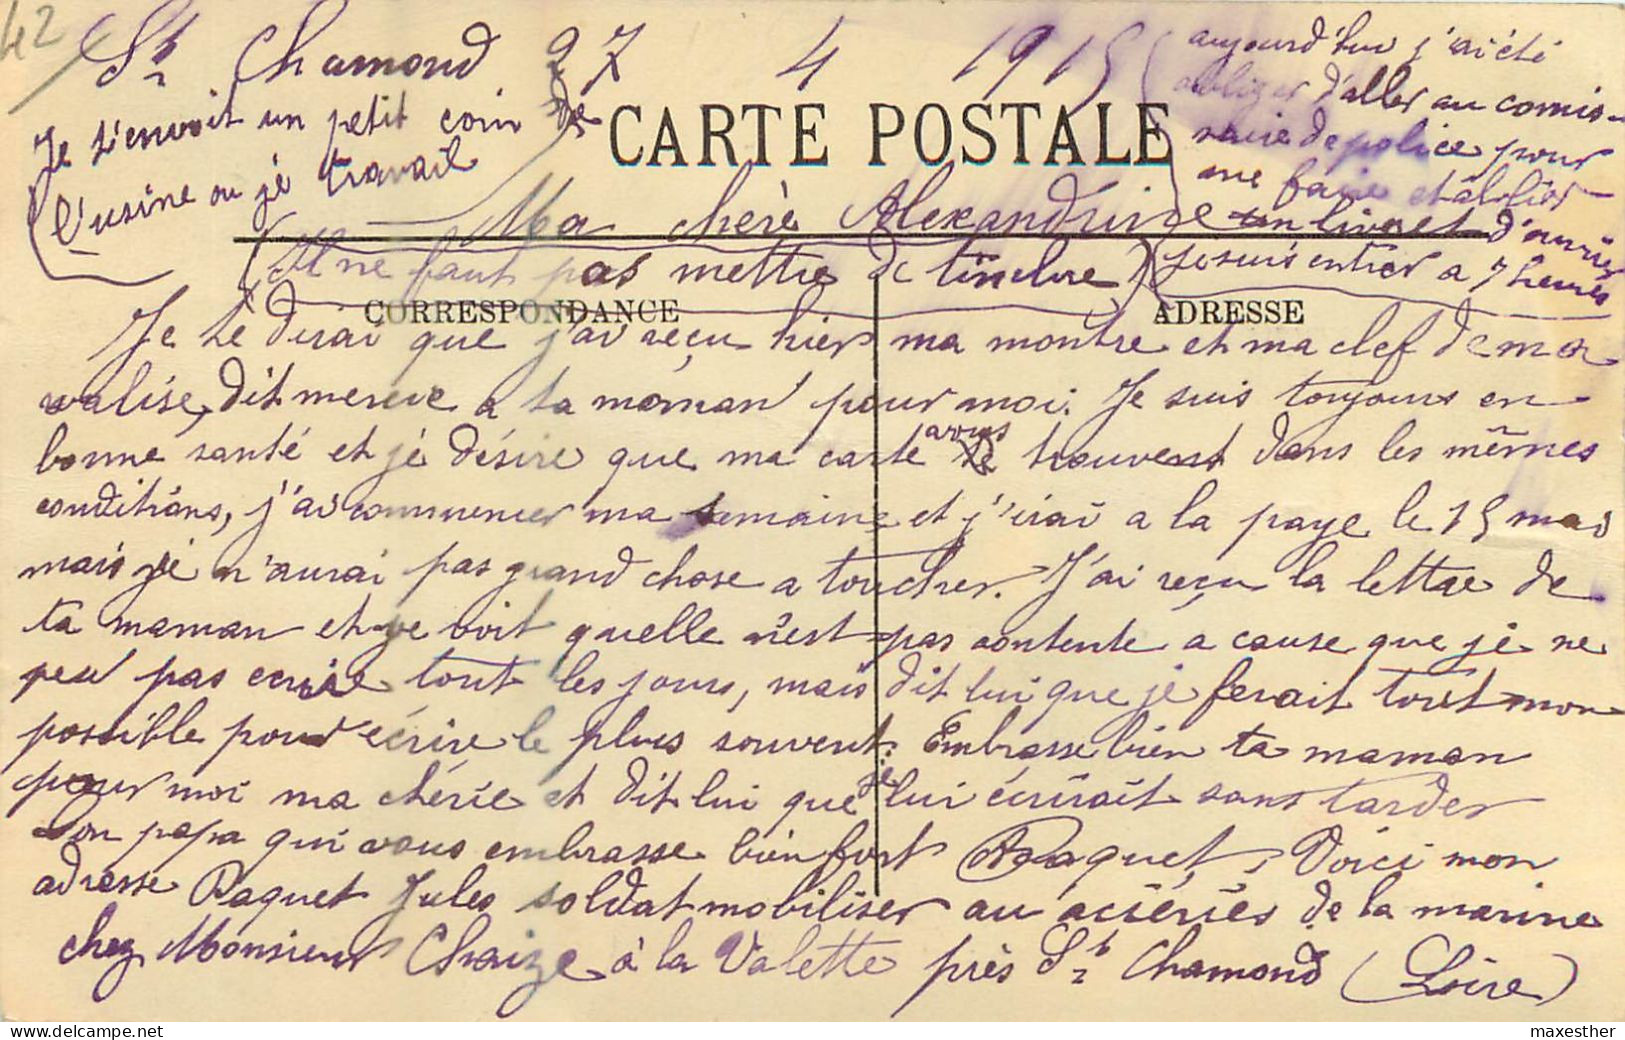 42
St Chamond 27 4 1915
Je t'envoit un petit coin de
l'usine ou jè travail
aujourd'hui j'ai été
obliger d'aller au comis-
saire de police pour
me faire etablier
un livret d'ouvrier
je suis entrer a 7 heures
CARTE POSTALE
Ma cherè Alexandrine
(Il ne faut pas mettre de timbre)
CORRESPONDANCE
ADRESSE
Je te dirai que j'ai reçu hier ma montre et ma clef de ma
valise, dit merci a ta maman pour moi. Je suis toujours en
bonne santé et jè désire que ma carte vous trouvent dans les mêmes
conditions, j'ai commencer ma semaine et j'irai a la paye le 15 mai
mais je n'aurai pas grand chose a toucher. J'ai reçu la lettre de
ta maman et je voit quelle n'est pas contente a cause que je ne
peu pas ecrire tout les jours, mais dit lui que je ferait tout mon
possible pour écrire le plus souvent. Embrasse bien ta maman
pour moi ma chérie et dit lui que je lui écrirait sans tarder
Ton papa qui vous embrasse bien fort Raquet, Voici mon
adresse Raquet Jules soldat mobiliser au aciéries de la marine
chez Monsieur Chaize à la Valette près St Chamond (Loire)
maxesther